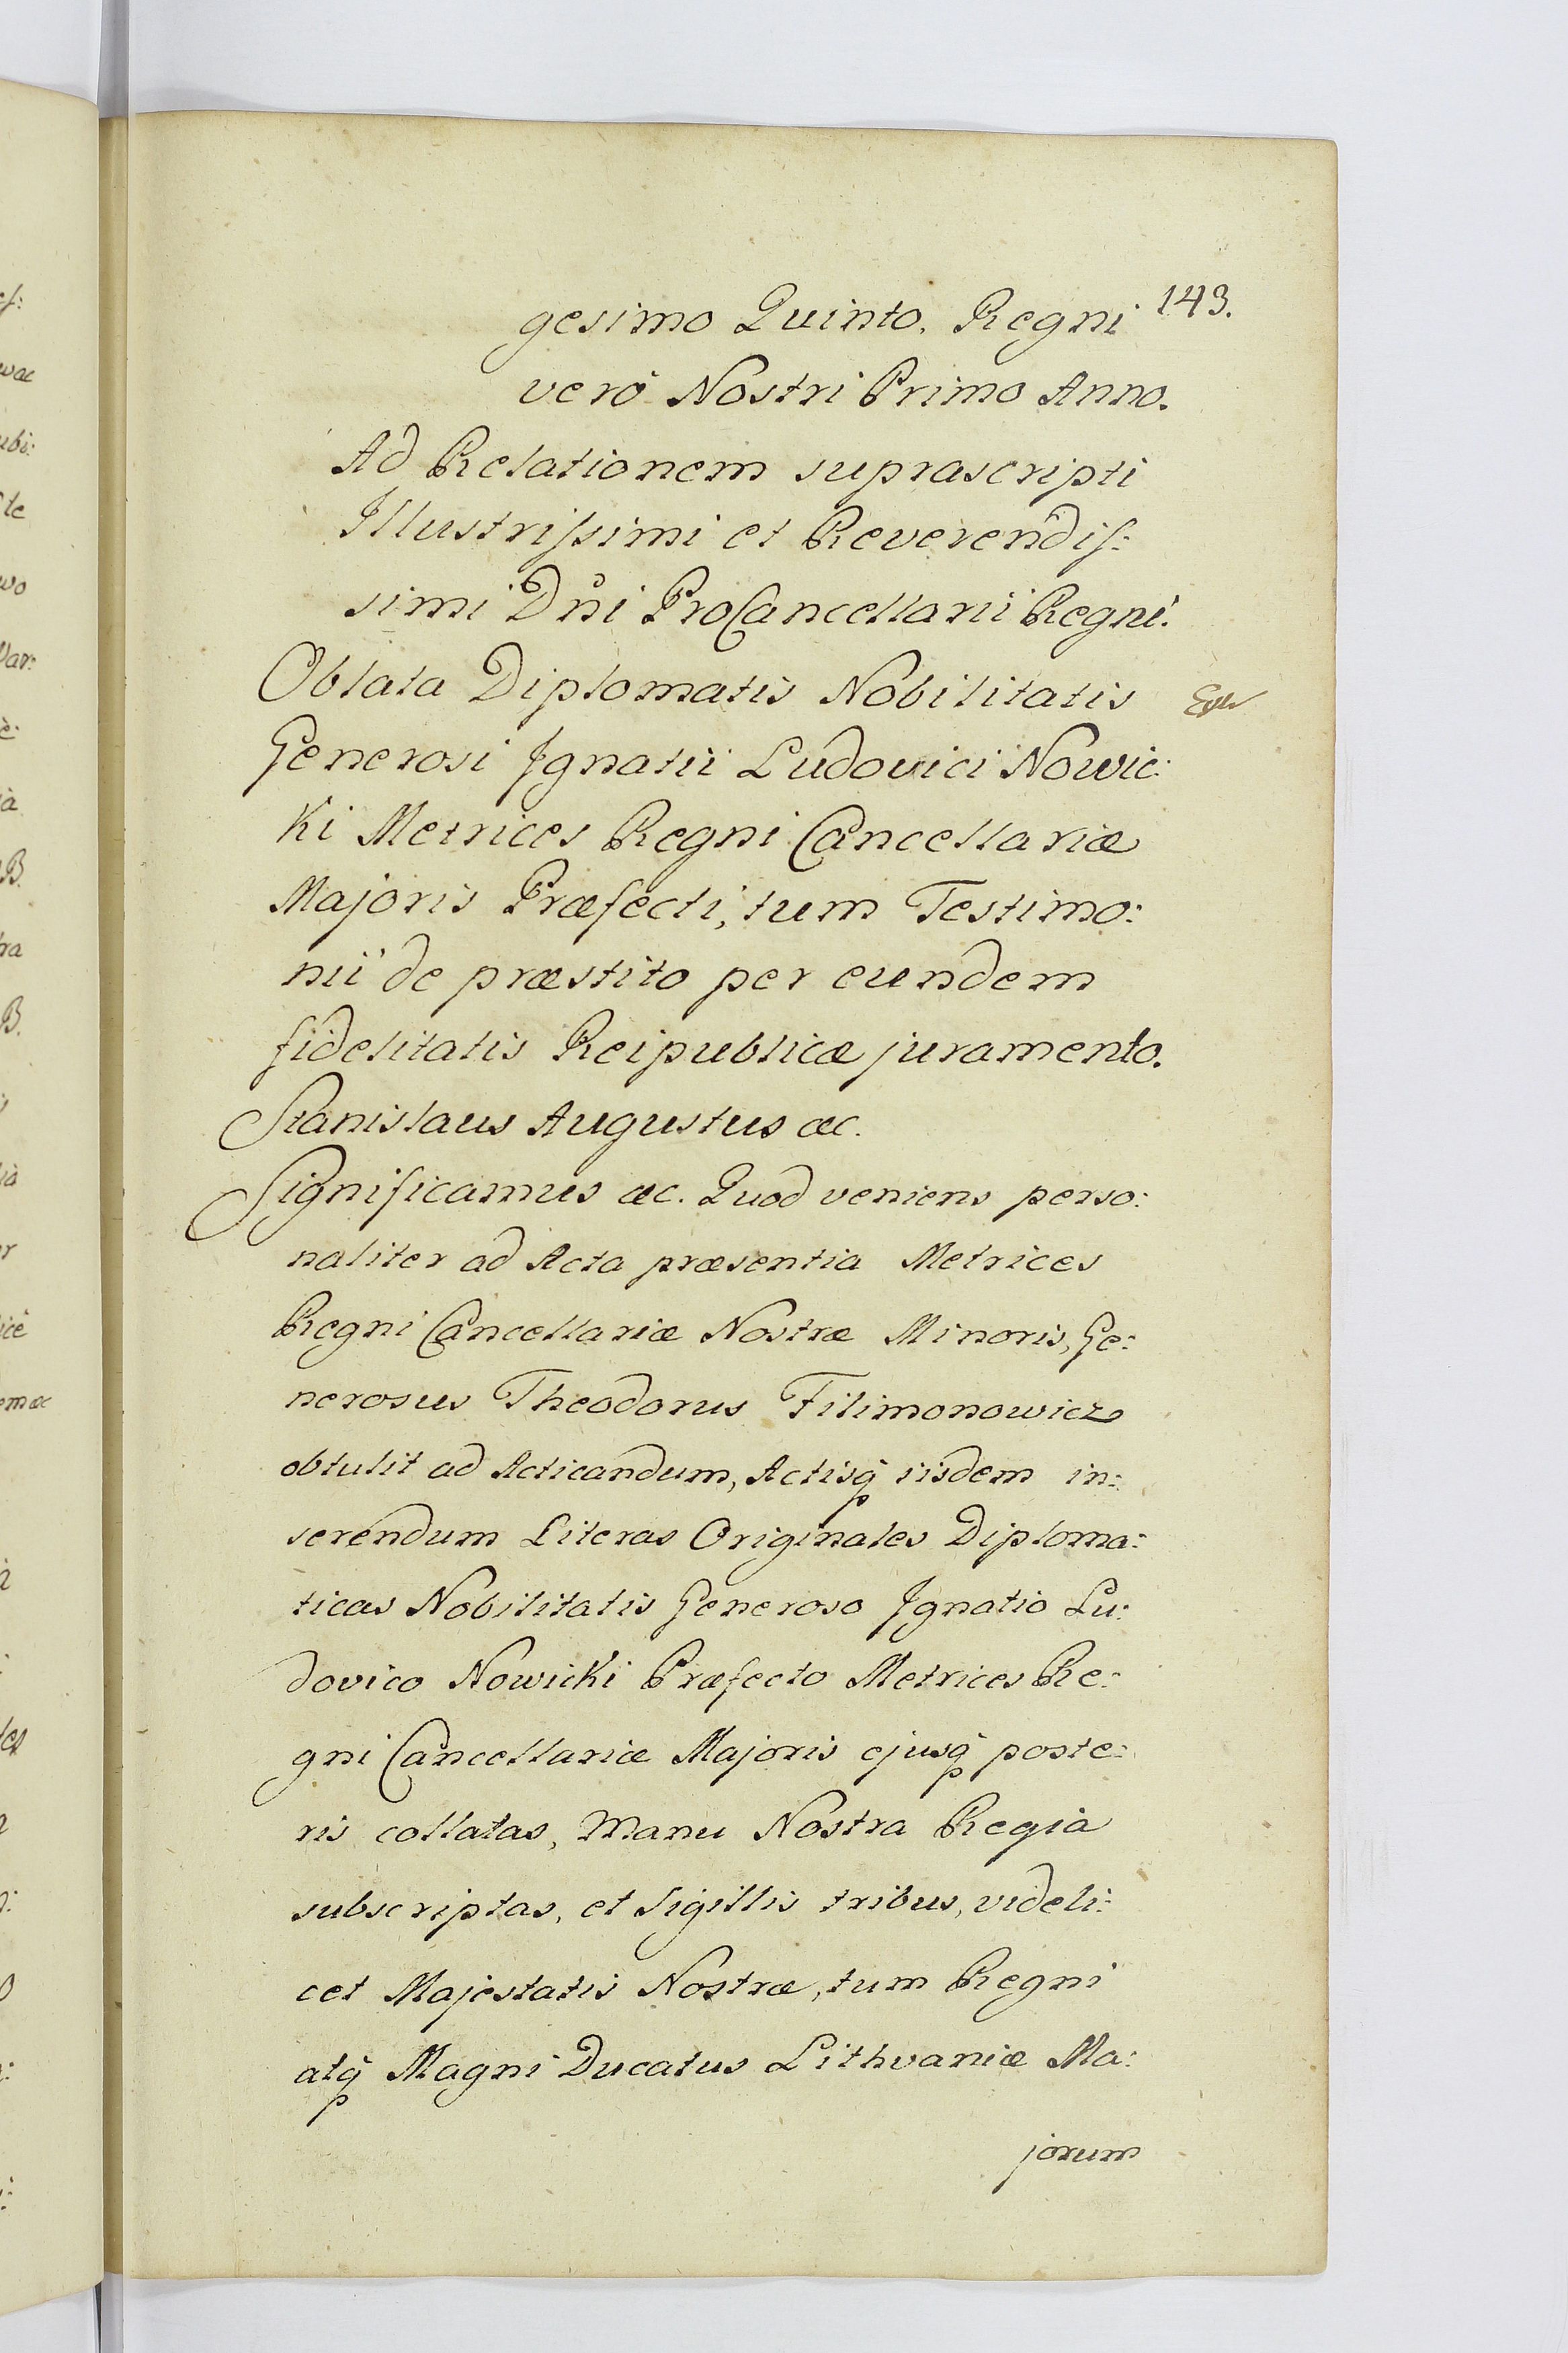 143.
gesimo Quinto. Regni
verò Nostri Primo Anno.
Ad Relationem suprascripti
Illustrissimi et Reverendis:
simi Dni ProCancellarii Regni.
Oblata Diplomatis Nobilitatis
Generosi Ignatii Ludovici Nowic:
ki Metrices Regni Cancellariæ
Majoris Præfecti, tum Testimo:
nii de præstito per eundem
fidelitatis Reipublicæ juramento.
Stanislaus Augustus &c.
Significamus &c. Quod veniens perso:
naliter ad Acta præsentia Metrices
Regni Cancellariæ Nostræ Minoris, Ge:
nerosus Theodorus Filimonowicz
obtulit ad Acticandum, Actisq iisdem in:
serendum Literas Originales Diploma:
ticas Nobilitatis Generoso Ignatio Lu:
dovico Nowicki Præfecto Metrices Re:
gni Cancellariæ Majoris ejusq poste:
ris collatas, Manu Nostra Regia
subscriptas, et Sigillis tribus, videli:
cet Majestatis Nostræ, tum Regni
atq Magni Ducatus Lithvaniæ Ma:
jorum